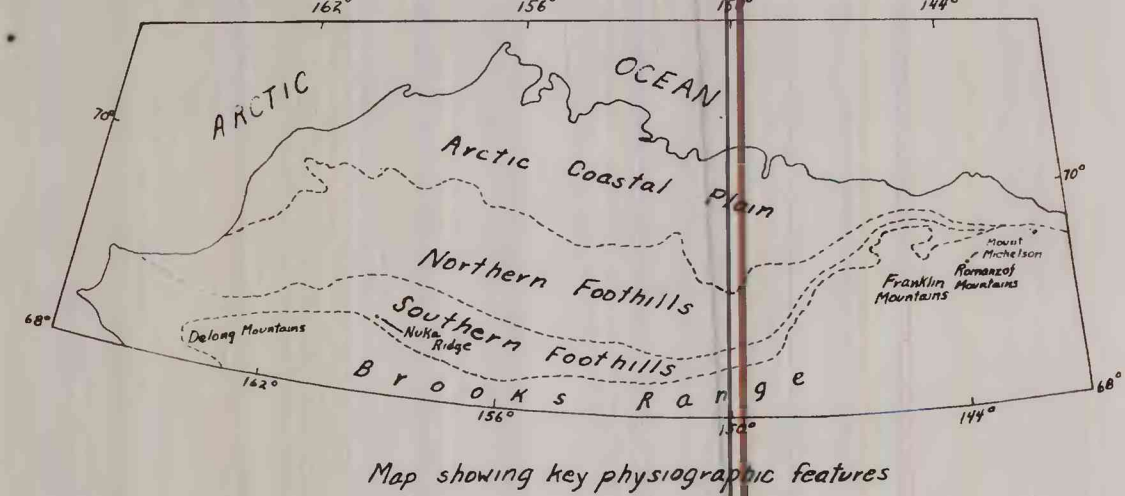 162°
156°
150°
144°
ARCTIC
OCEAN
70°
Arctic Coastal Plain
70°
Northern Foothills
Mount
Michelson
Romanzof
Mountains
Franklin
Mountains
68°
Delong Mountains
Southern Foothills
Nuka
Ridge
Brooks Range
68°
162°
156°
150°
144°
Map showing key physiographic features